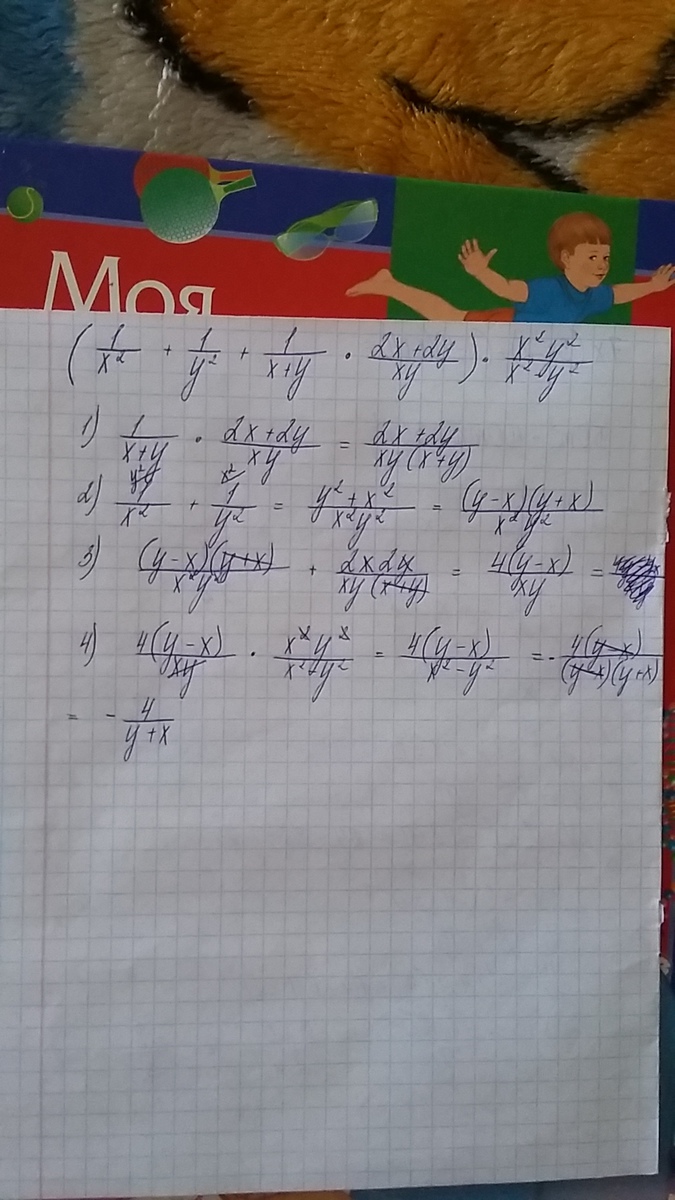 Моя
(1/x² + 1/y² + 1/(x+y) · (2x+2y)/(xy)) · (x²y²)/(x²-y²)
1) 1/(x+y) · (2x+2y)/(xy) = (2x+2y)/(xy(x+y))
2) 1/x² + 1/y² = (y²+x²)/(x²y²) = ((y-x)(y+x))/(x²y²)
3) ((y-x)(y+x))/(x²y²) + (2x2y)/(xy(x+y)) = (4(y-x))/(xy) =
4) (4(y-x))/(xy) · (x²y²)/(x²-y²) = (4(y-x))/(x²-y²) = - (4(y-x))/((y-x)(y+x))
= - 4/(y+x)